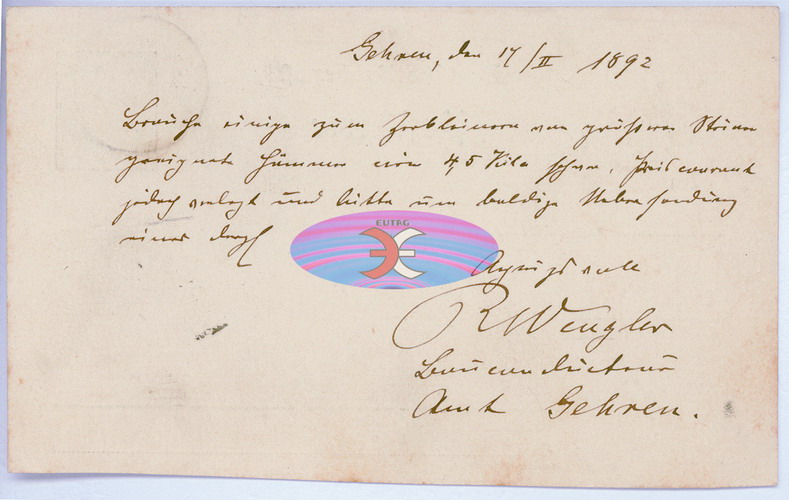 Gehren, den 17/II 1892
Brauche einige zum Zerkleinern von größeren Steinen
geeignete Hämmer circa 4,5 Kilo schwer, Preiscourant
jedoch verlegt und bitte um baldige Uebersendung
eines dergl
EUTAG
Achtungsvoll
R Wengler
Bauconducteur
Amt Gehren.